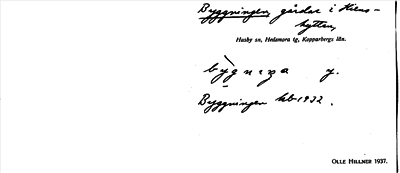 Byggningen, gårdar i Kiens-
hyttan,
Husby sn, Hedemora tg, Kopparbergs län.
Byggningen hb 1932.
OLLE HILLNER 1937.